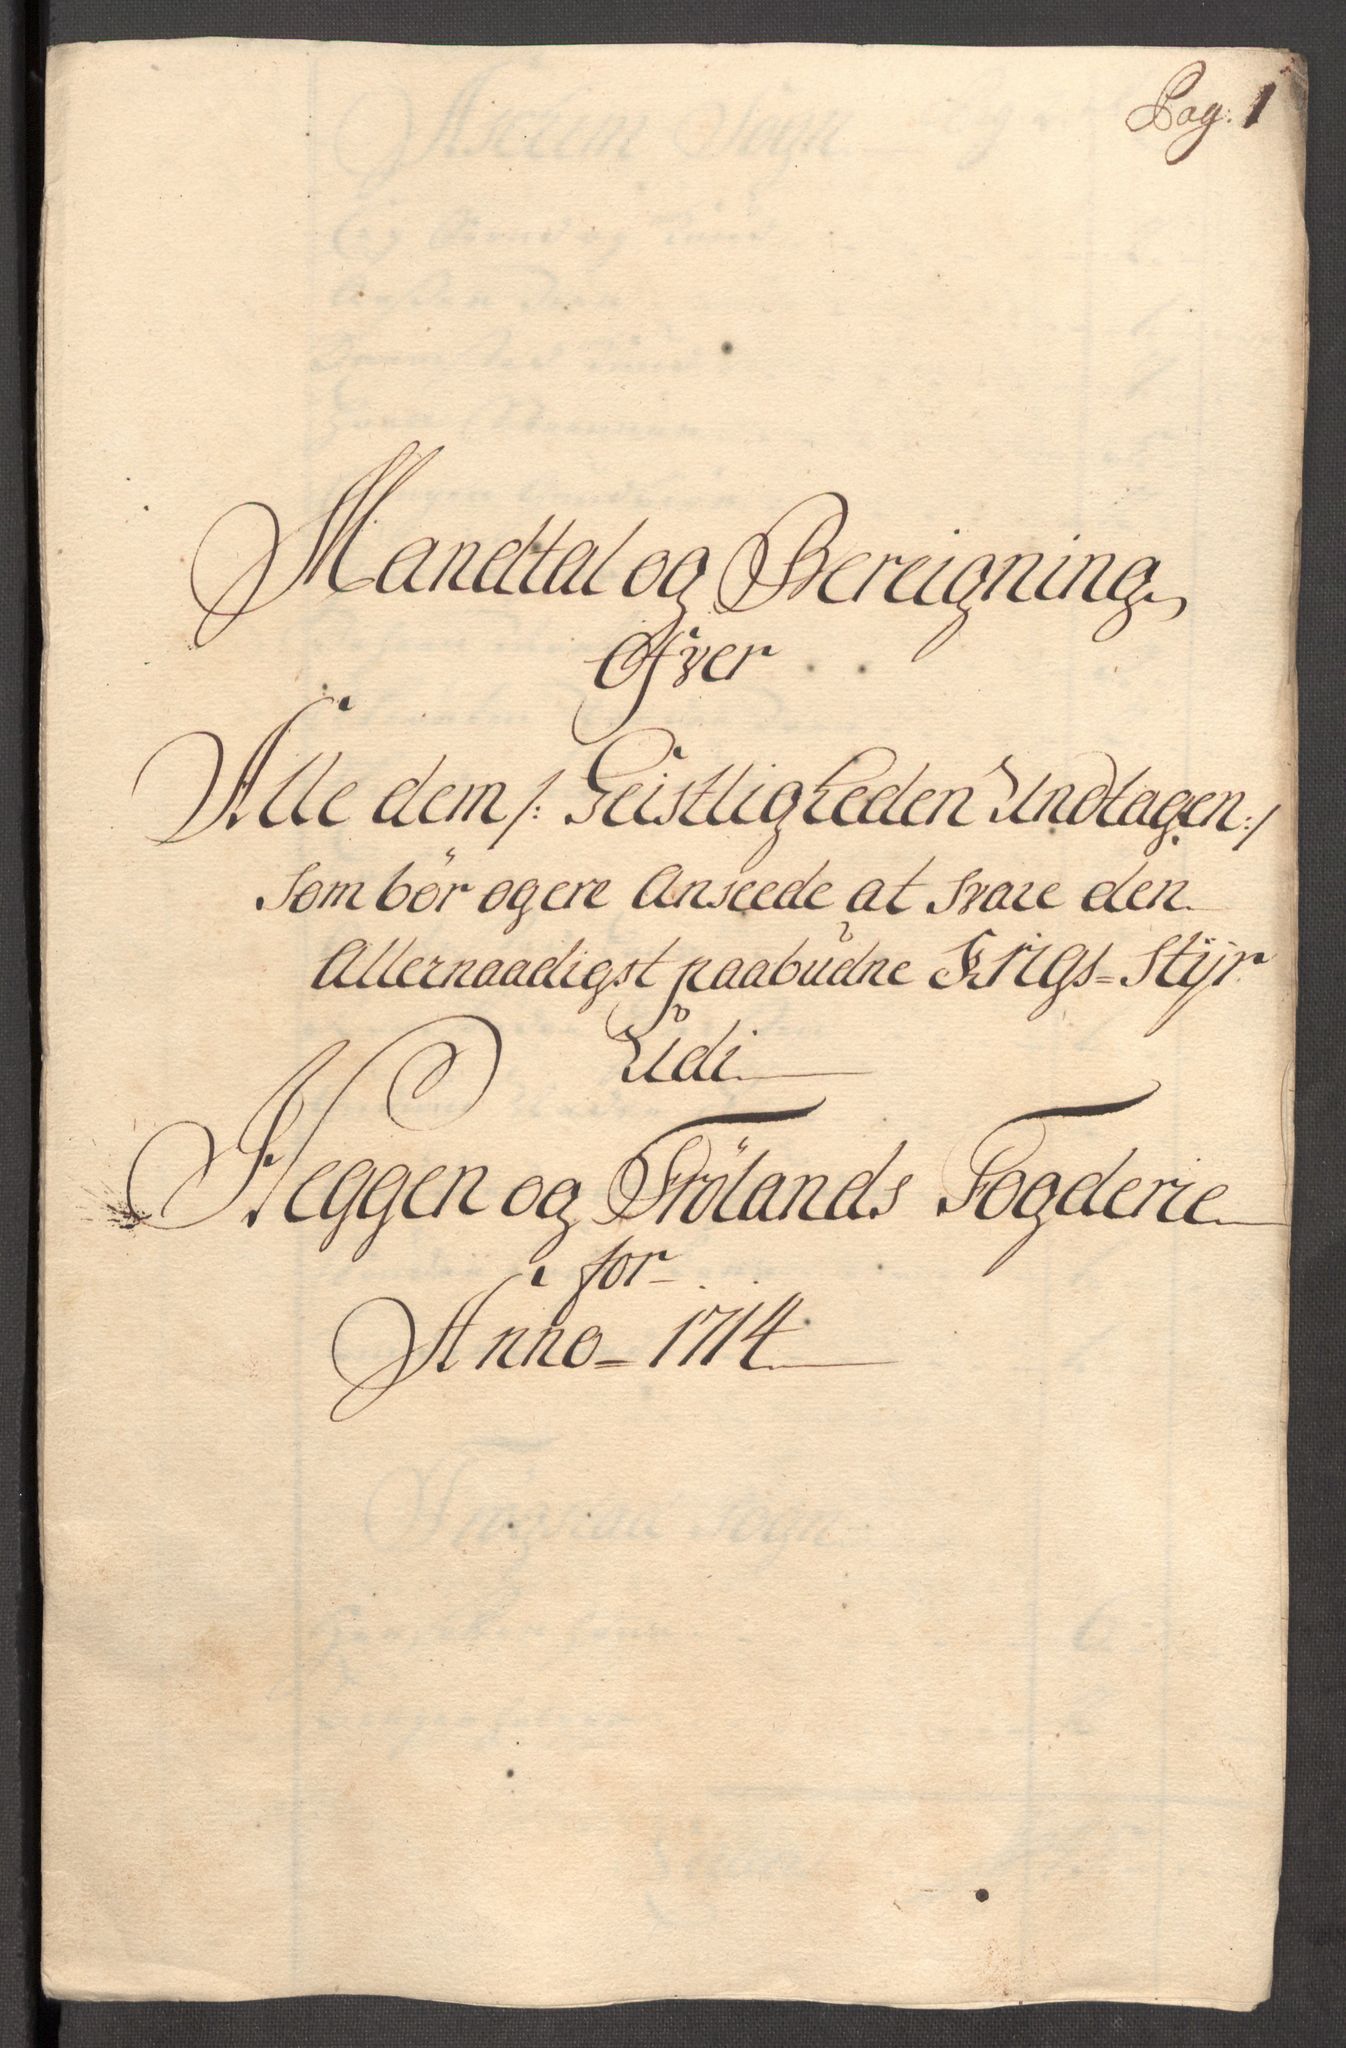 Pag: 1
Mandtal og Bereigning
Ofver
Alle dem /: Geistligheden Undtagen :/
som bör og ere Anseede at svare den
Allernaadigst paabudne Krigs=Styr
Udi
Heggen og Frölands Fogderie
for
Anno 1714